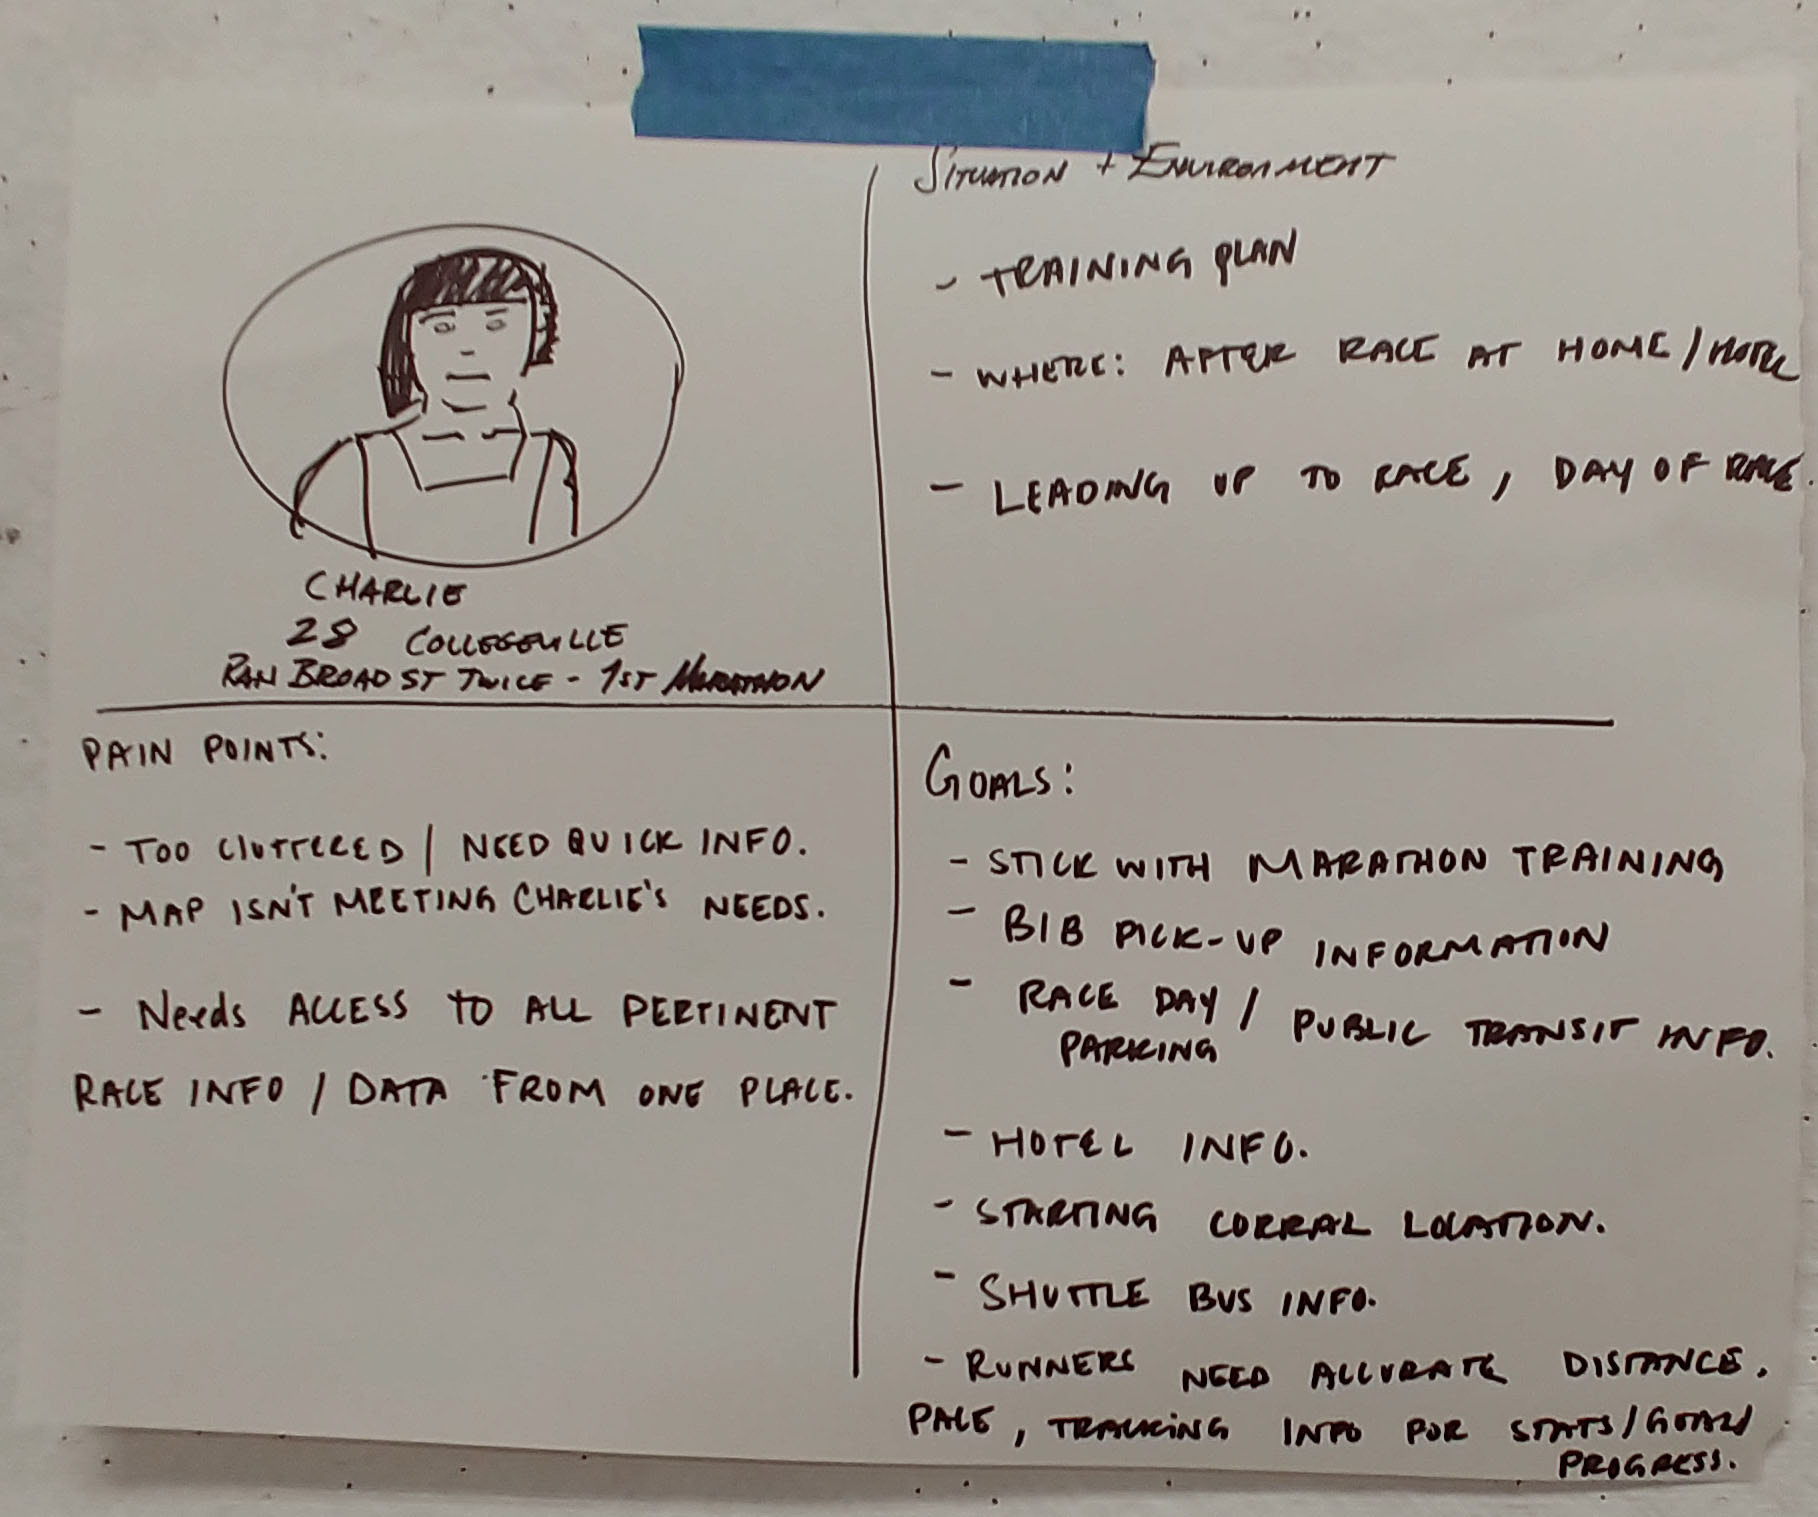 CHARLIE
28 COLLEGEVILLE
RAN BROAD ST TWICE - 1ST MARATHON
SITUATION + ENVIRONMENT
- TRAINING PLAN
- WHERE: AFTER RACE AT HOME / HOTEL
- LEADING UP TO RACE, DAY OF RACE.
PAIN POINTS:
- TOO CLUTTERED / NEED QUICK INFO.
- MAP ISN'T MEETING CHARLIE'S NEEDS.
- Needs ACCESS TO ALL PERTINENT
RACE INFO / DATA FROM ONE PLACE.
GOALS:
- STICK WITH MARATHON TRAINING
- BIB PICK-UP INFORMATION
- RACE DAY / PUBLIC TRANSIT INFO.
PARKING
- HOTEL INFO.
- STARTING CORRAL LOCATION.
- SHUTTLE BUS INFO.
- RUNNERS NEED ACCURATE DISTANCE,
PACE, TRACKING INFO FOR STATS/GOALS/
PROGRESS.